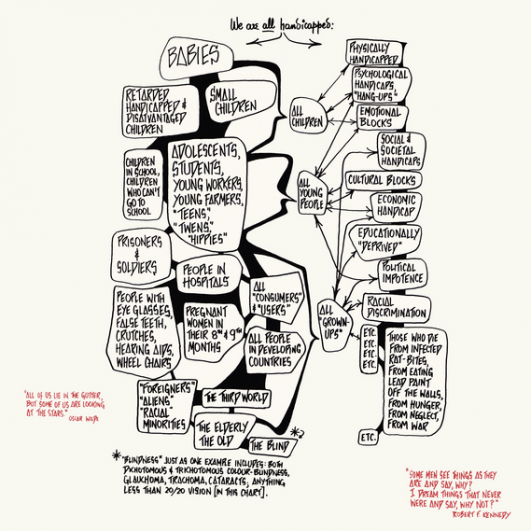 We are all handicapped:
BABIES
RETARDED,
HANDICAPPED &
DISADVANTAGED
CHILDREN
SMALL
CHILDREN
CHILDREN
IN SCHOOL,
CHILDREN
WHO CAN'T
GO TO
SCHOOL
ADOLESCENTS,
STUDENTS,
YOUNG WORKERS,
YOUNG FARMERS,
"TEENS",
"TWENS",
"HIPPIES"
PRISONERS
&
SOLDIERS
PEOPLE IN
HOSPITALS
PEOPLE WITH
EYE GLASSES,
FALSE TEETH,
CRUTCHES,
HEARING AIDS,
WHEEL CHAIRS
PREGNANT
WOMEN IN
THEIR 8TH & 9TH
MONTHS
ALL
"CONSUMERS"
& "USERS"
ALL PEOPLE
IN DEVELOPING
COUNTRIES
"FOREIGNERS"
"ALIENS"
RACIAL
MINORITIES
THE THIRD WORLD
THE ELDERLY
THE OLD
THE BLIND
*
ALL
CHILDREN
ALL
YOUNG
PEOPLE
ALL
"GROWN-
UPS"
PHYSICALLY
HANDICAPPED
PSYCHOLOGICAL
HANDICAPS,
"HANG-UPS"
EMOTIONAL
BLOCKS
SOCIAL &
SOCIETAL
HANDICAPS
CULTURAL BLOCKS
ECONOMIC
HANDICAP
EDUCATIONALLY
"DEPRIVED"
POLITICAL
IMPOTENCE
RACIAL
DISCRIMINATION
ETC.
ETC.
ETC.
ETC.
THOSE WHO DIE
FROM INFECTED
RAT-BITES,
FROM EATING
LEAD PAINT
OFF THE WALLS,
FROM HUNGER,
FROM NEGLECT,
FROM WAR
ETC.
*"BLINDNESS" JUST AS ONE EXAMPLE INCLUDES: BOTH
DICHOTOMOUS & TRICHOTOMOUS COLOUR-BLINDNESS,
GLAUCHOMA, TRACHOMA, CATARACTS, ANYTHING
LESS THAN 20/20 VISION [IN THIS CHART].
"ALL OF US LIE IN THE GUTTER,
BUT SOME OF US ARE LOOKING
AT THE STARS."
OSCAR WILDE
"SOME MEN SEE THINGS AS THEY
ARE AND SAY, WHY?
I DREAM THINGS THAT NEVER
WERE AND SAY, WHY NOT?"
ROBERT F. KENNEDY